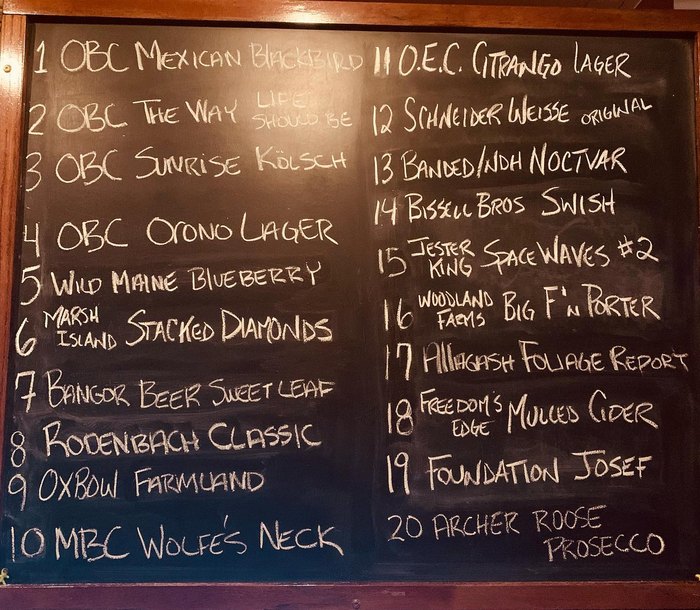 1 OBC MEXICAN BLACKBIRD
2 OBC THE WAY LIFE
SHOULD BE
3 OBC SUNRISE KÖLSCH
4 OBC ORONO LAGER
5 WILD MAINE BLUEBERRY
6 MARSH
ISLAND STACKED DIAMONDS
7 BANGOR BEER SWEET LEAF
8 RODENBACH CLASSIC
9 OXBOW FARMLAND
10 MBC WOLFE'S NECK
11 O.E.C. CITRANGO LAGER
12 SCHNEIDER WEISSE ORIGINAL
13 BANDED/NDH NOCTVAR
14 BISSELL BROS SWISH
15 JESTER
KING SPACE WAVES #2
16 WOODLAND
FARMS BIG F'N PORTER
17 Allagash FOLIAGE REPORT
18 FREEDOM'S
EDGE MULLED CIDER
19 FOUNDATION JOSEF
20 ARCHER ROOSE
PROSECCO